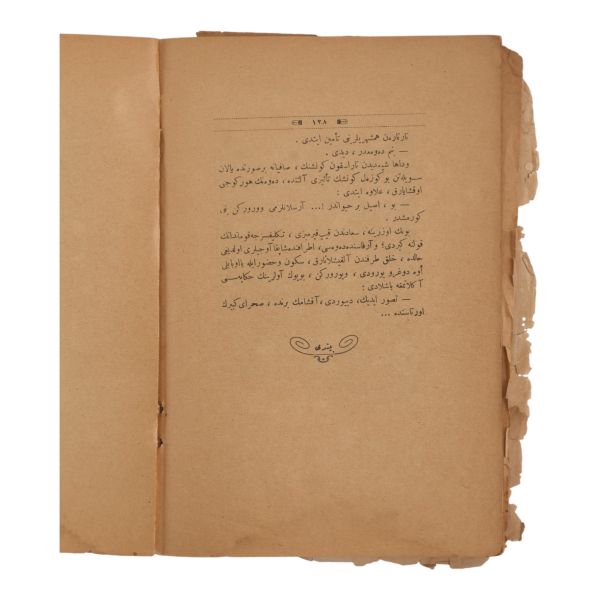 ١٣٨
تارتارەن همشهریلرینی تأمین ایتدی .
— بنم دەوەمدر ، دیدی .
وداها شیمدیدن تاراسقون كونشنك ، صافیانه برصورتده یالان
سویلەتن بوكوزەل كونشك تأثیری آلتنده ، دەوەنك هوركوجی
اوقشایارق ، علاوه ایتدی :
— بو ، اصیل بر حیواندر !... آرسلانلرمی وورورکن بنی
كورمشدر .
بونك اوزرینه ، سعادتدن قیپ قیرمزی ، تكلیفسزجه قوماندانك
قولنه كیردی ؛ وآرقاسنده دەوەسی ، اطرافنده شاپقا آوجیلری اولدیغی
حالده ، خلق طرفندن آلقیشلانارق ، سكون وحضورایله باوبابلی
أوه دوغرو یورودی ، ویورورکن ، بویوك آولرینك حكایەسنی
آكلاتمغه باشلادی :
— تصور ایدیك ، دییوردی ، آقشامك برنده ، صحرای كبیرك
اورتاسنده ...
بیتدی